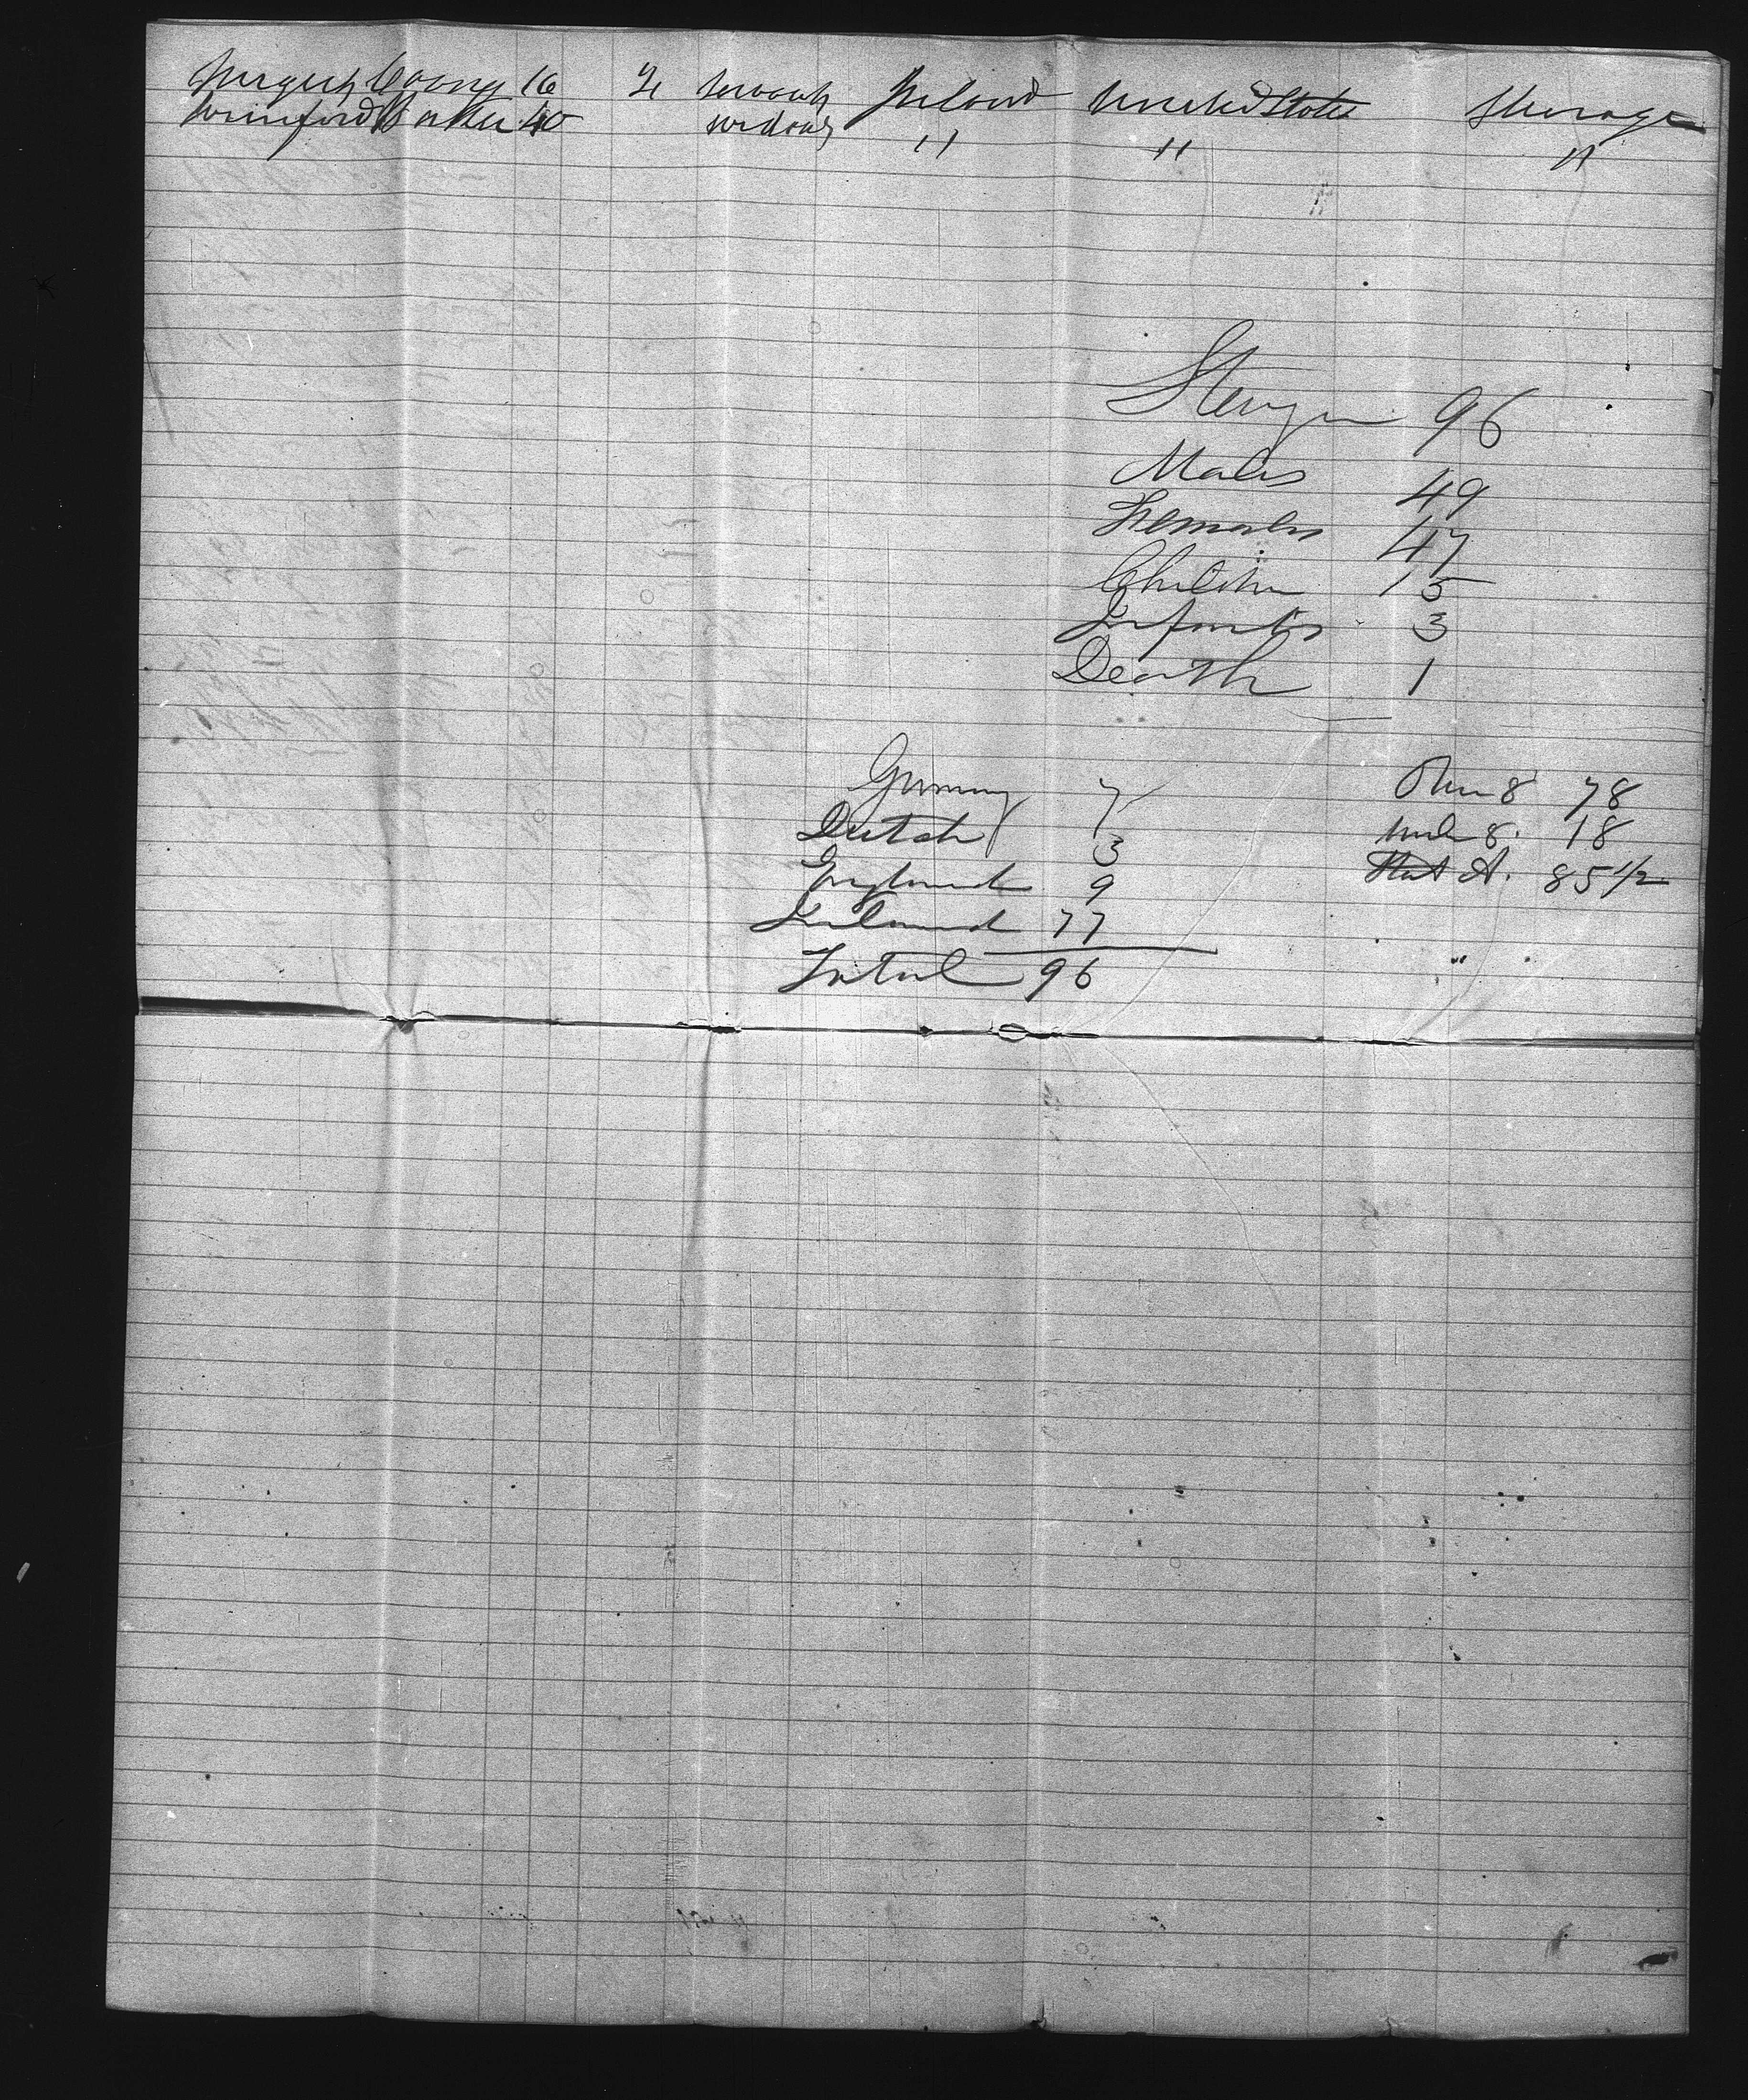 16 Servant Ireland United States Steerage
Winiford 40 widow " " "
Steerage 96
Males 49
Females 47
Children 15
Infants 3
Death 1
Germany 7 Over 8 78
Dutch 3 under 8. 18
England 9 Stat A. 85 1/2
Ireland 77
Total 96